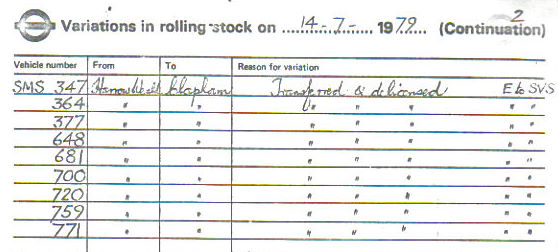 2
Variations in rolling-stock on ....14-7-.... 1979.... (Continuation)
Vehicle number From To Reason for variation
SMS 347 Harrow Weald Clapham Transferred & delicensed E to SVS
364 " " " " " " "
377 " " " " " " "
648 " " " " " " "
681 " " " " " " "
700 " " " " " " "
720 " " " " " " "
759 " " " " " " "
771 " " " " " " "